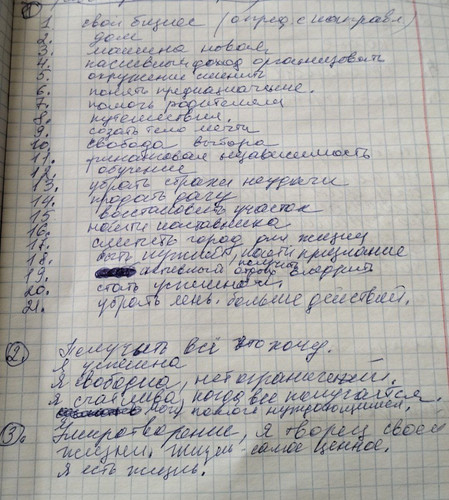 1
1. свой бизнес (опред с направл)
2. дом
3. машина новая
4. пассивный доход организовать
5. окружение сменить
6. понять предназначение.
7. помочь родителям
8. путешествия.
9. создать тело мечты
10. свобода выбора
11. финансовая независимость
12. обучение
13. убрать страхи неудачи
14. продать дачу
15 восстановить участок
16. найти наставника
17. сменить город для жизни
18. быть нужной, найти признание
19. активный получить внедрить
20. стать успешной.
21. убрать лень. больше действий.
2 Получить всё что хочу.
Я успешна
Я свободна, нет ограничений.
Я счастлива, когда все получается.
могу помочь нуждающимся.
3. Умиротворение, я творец своей
жизни. Жизнь - самое ценное.
Я есть жизнь.